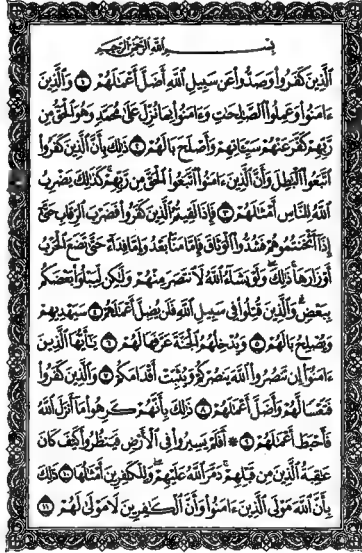 بِسْمِ اللَّهِ الرَّحْمَٰنِ الرَّحِيمِ
الَّذِينَ كَفَرُوا وَصَدُّوا عَن سَبِيلِ اللَّهِ أَضَلَّ أَعْمَالَهُمْ ١ وَالَّذِينَ
ءَامَنُوا وَعَمِلُوا الصَّالِحَاتِ وَءَامَنُوا بِمَا نُزِّلَ عَلَىٰ مُحَمَّدٍ وَهُوَ الْحَقُّ مِن
رَّبِّهِمْ كَفَّرَ عَنْهُمْ سَيِّئَاتِهِمْ وَأَصْلَحَ بَالَهُمْ ٢ ذَٰلِكَ بِأَنَّ الَّذِينَ كَفَرُوا
اتَّبَعُوا الْبَاطِلَ وَأَنَّ الَّذِينَ ءَامَنُوا اتَّبَعُوا الْحَقَّ مِن رَّبِّهِمْ كَذَٰلِكَ يَضْرِبُ
اللَّهُ لِلنَّاسِ أَمْثَالَهُمْ ٣ فَإِذَا لَقِيتُمُ الَّذِينَ كَفَرُوا فَضَرْبَ الرِّقَابِ حَتَّىٰ
إِذَا أَثْخَنتُمُوهُمْ فَشُدُّوا الْوَثَاقَ فَإِمَّا مَنًّا بَعْدُ وَإِمَّا فِدَاءً حَتَّىٰ تَضَعَ الْحَرْبُ
أَوْزَارَهَا ذَٰلِكَ وَلَوْ يَشَاءُ اللَّهُ لَانتَصَرَ مِنْهُمْ وَلَٰكِن لِّيَبْلُوَا بَعْضَكُم
بِبَعْضٍ وَالَّذِينَ قُتِلُوا فِي سَبِيلِ اللَّهِ فَلَن يُضِلَّ أَعْمَالَهُمْ ٤ سَيَهْدِيهِمْ
وَيُصْلِحُ بَالَهُمْ ٥ وَيُدْخِلُهُمُ الْجَنَّةَ عَرَّفَهَا لَهُمْ ٦ يَا أَيُّهَا الَّذِينَ
ءَامَنُوا إِن تَنصُرُوا اللَّهَ يَنصُرْكُمْ وَيُثَبِّتْ أَقْدَامَكُمْ ٧ وَالَّذِينَ كَفَرُوا
فَتَعْسًا لَّهُمْ وَأَضَلَّ أَعْمَالَهُمْ ٨ ذَٰلِكَ بِأَنَّهُمْ كَرِهُوا مَا أَنزَلَ اللَّهُ
فَأَحْبَطَ أَعْمَالَهُمْ ٩ ۞ أَفَلَمْ يَسِيرُوا فِي الْأَرْضِ فَيَنظُرُوا كَيْفَ كَانَ
عَاقِبَةُ الَّذِينَ مِن قَبْلِهِمْ دَمَّرَ اللَّهُ عَلَيْهِمْ وَلِلْكَافِرِينَ أَمْثَالُهَا ١٠ ذَٰلِكَ
بِأَنَّ اللَّهَ مَوْلَى الَّذِينَ ءَامَنُوا وَأَنَّ الْكَافِرِينَ لَا مَوْلَىٰ لَهُمْ ١١